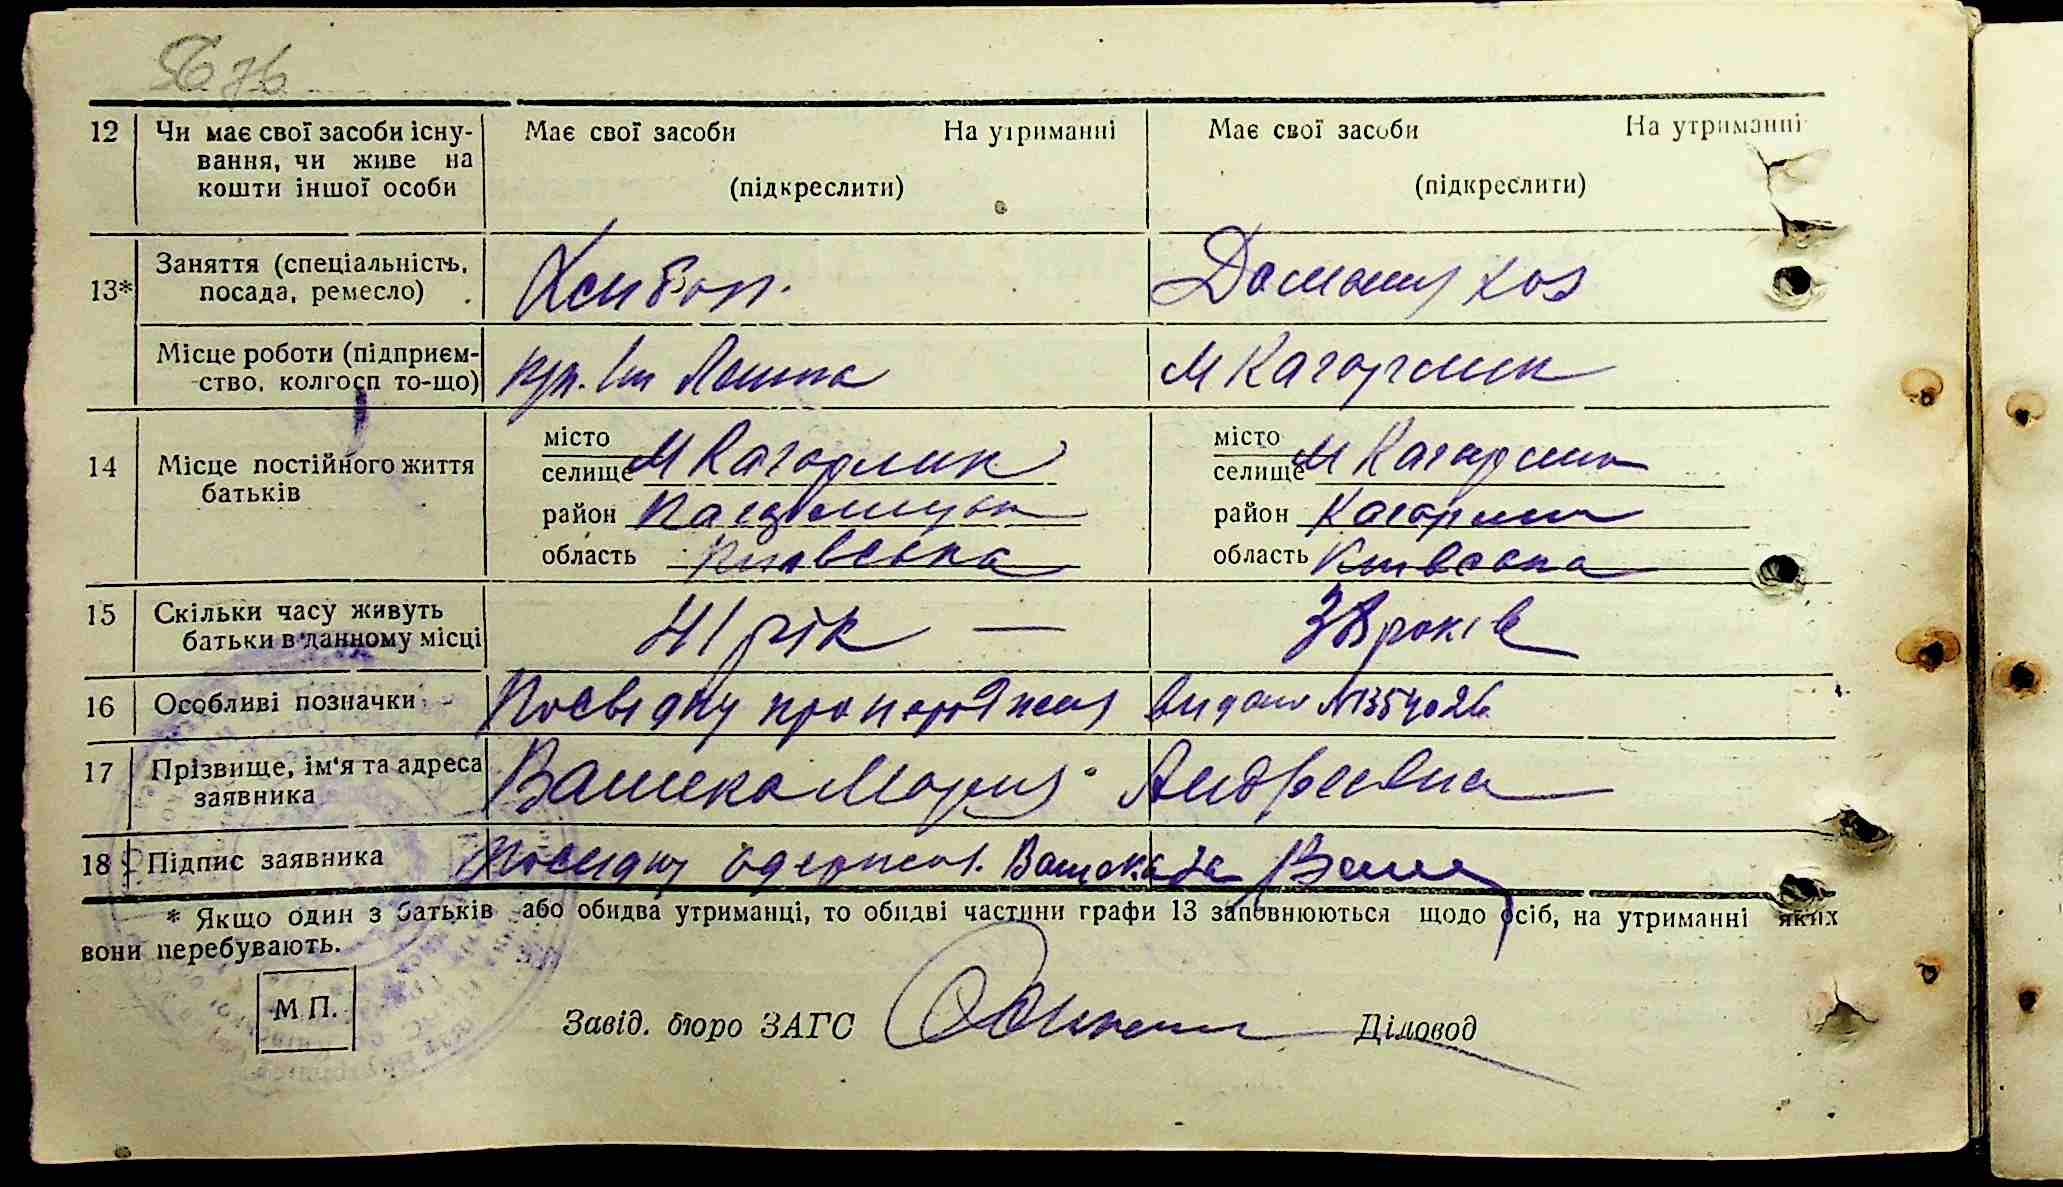 12 Чи має свої засоби існу- Має свої засоби На утриманні Має свої засоби На утриманні
вання, чи живе на
кошти іншої особи (підкреслити) (підкреслити)
13* Заняття (спеціальність, Хлібороб. Домашн хоз
посада, ремесло)
Місце роботи (підприєм- М Кагарлик
ство, колгосп то-що)
14 Місце постійного життя місто М Кагарлик місто М Кагарлик
батьків селище селище
район район Кагарлик
область Київська область Київська
15 Скільки часу живуть 41 рік — років
батьки в данному місці
16 Особливі позначки Посвідку про народження видано №354026
17 Прізвище, ім'я та адреса Ващека Мария Андреевна
заявника
18 Підпис заявника Посвідку одержал. Ващека за
* Якщо один з батьків або обидва утриманці, то обидві частини графи 13 заповнюються щодо осіб, на утриманні яких
вони перебувають.
М П.
Завід. бюро ЗАГС Діловод